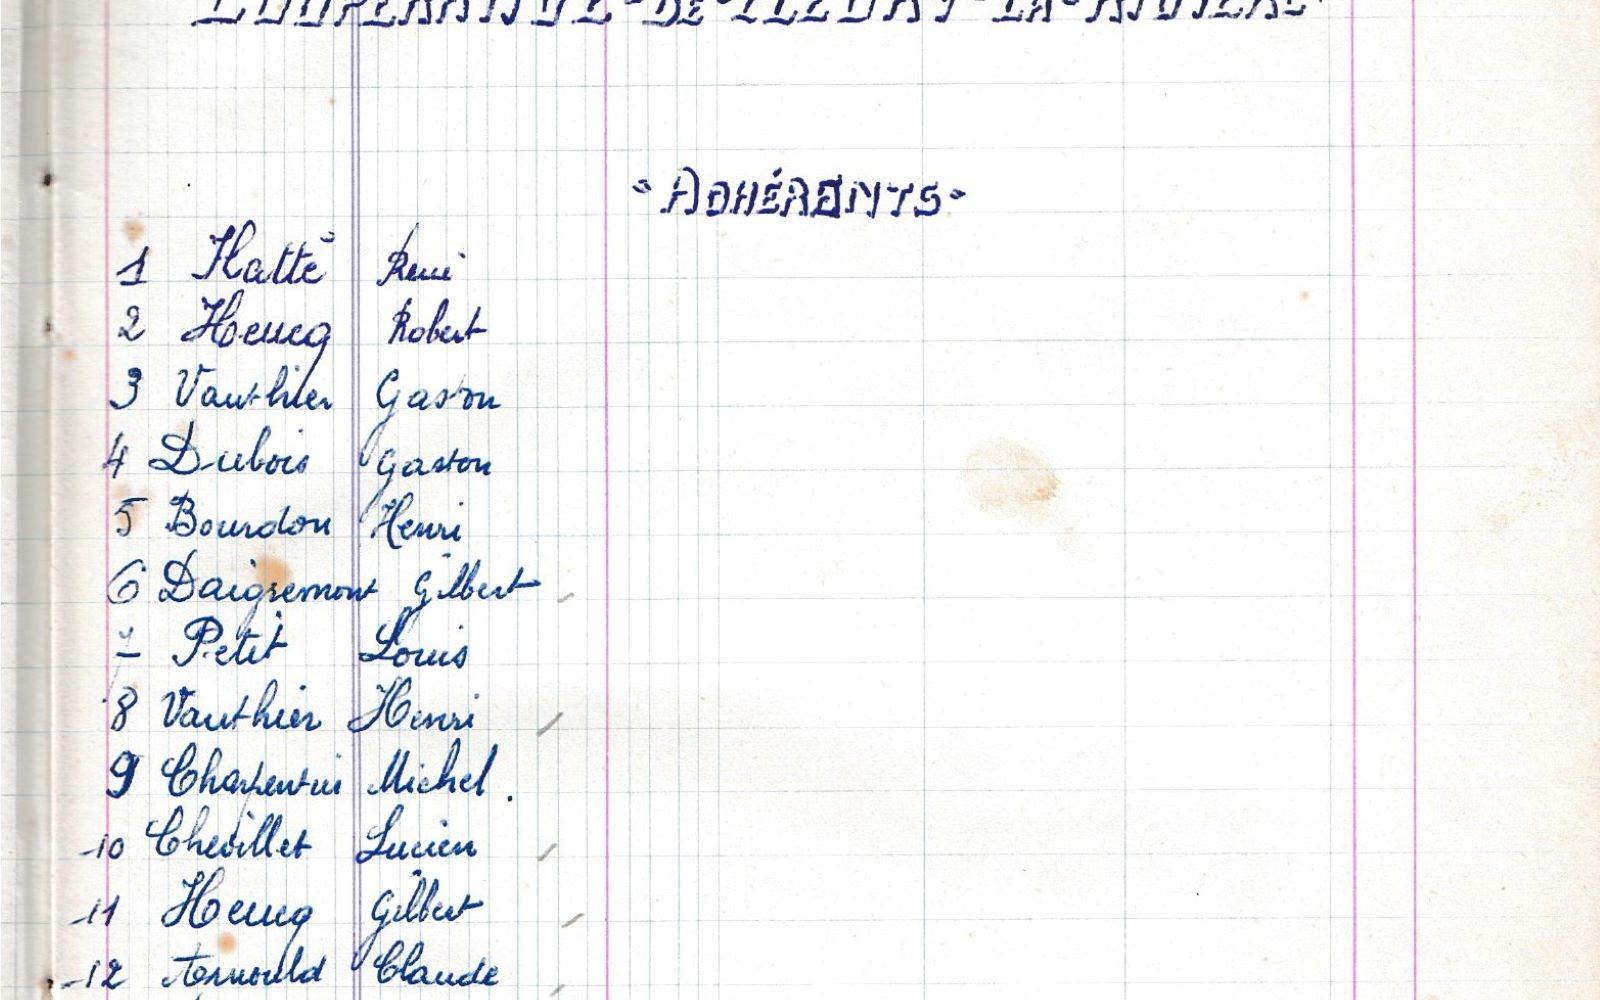 COOPÉRATIVE-DE-FLEURY-LA-RIVIÈRE
"ADHÉRENTS"
1 Hatté René
2 Heucq Robert
3 Vauthier Gaston
4 Dubois Gaston
5 Bourdon Henri
6 Daigremont Gilbert
7 Petit Louis
8 Vauthier Henri
9 Charpentier Michel.
-10 Chevillet Lucien
-11 Heucq Gilbert
-12 Arnould Claude